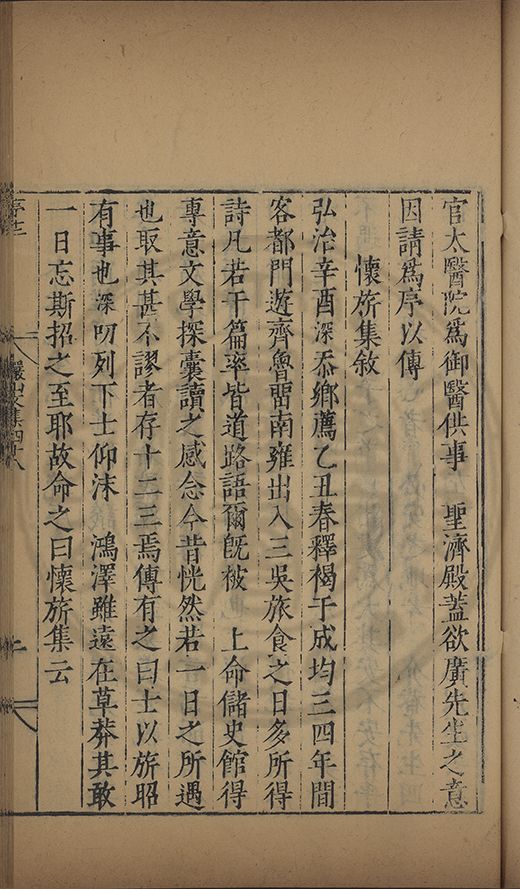 官太醫院爲御醫供事　聖濟殿蓋欲廣先生之意
因請爲序以傳
懷旂集敘
弘治辛酉深忝鄉薦乙丑春釋褐于成均三四年間
客都門遊齊魯畱南雍出入三吳旅食之日多所得
詩凡若干篇率皆道路語爾旣被　上命儲史館得
專意文學探囊讀之感念今昔恍然若一日之所遇
也取其甚不謬者存十二三焉傳有之曰士以旂昭
有事也深叨列下士仰沐　鴻澤雖遠在草莽其敢
一日忘斯招之至耶故命之曰懷旂集云